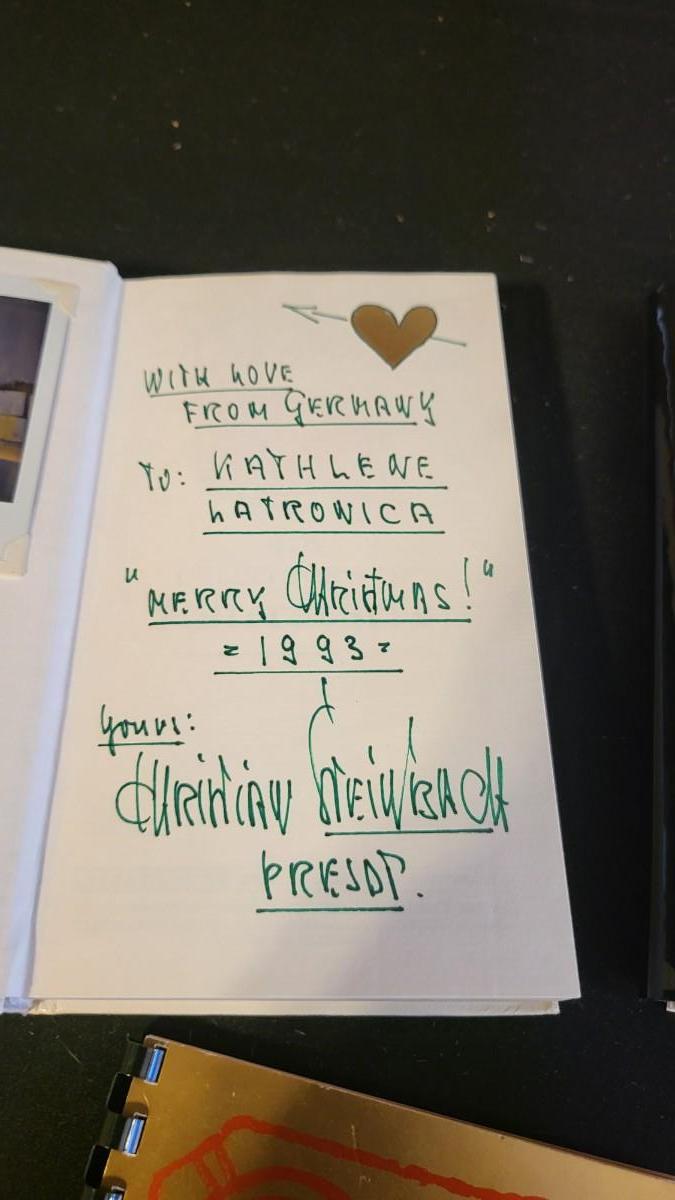 WITH LOVE
FROM GERMANY
TO: KATHLENE
LATRONICA
"MERRY Christmas!"
=1993=
Yours:
CHRISTIAN STEINBACH
PRESDT.